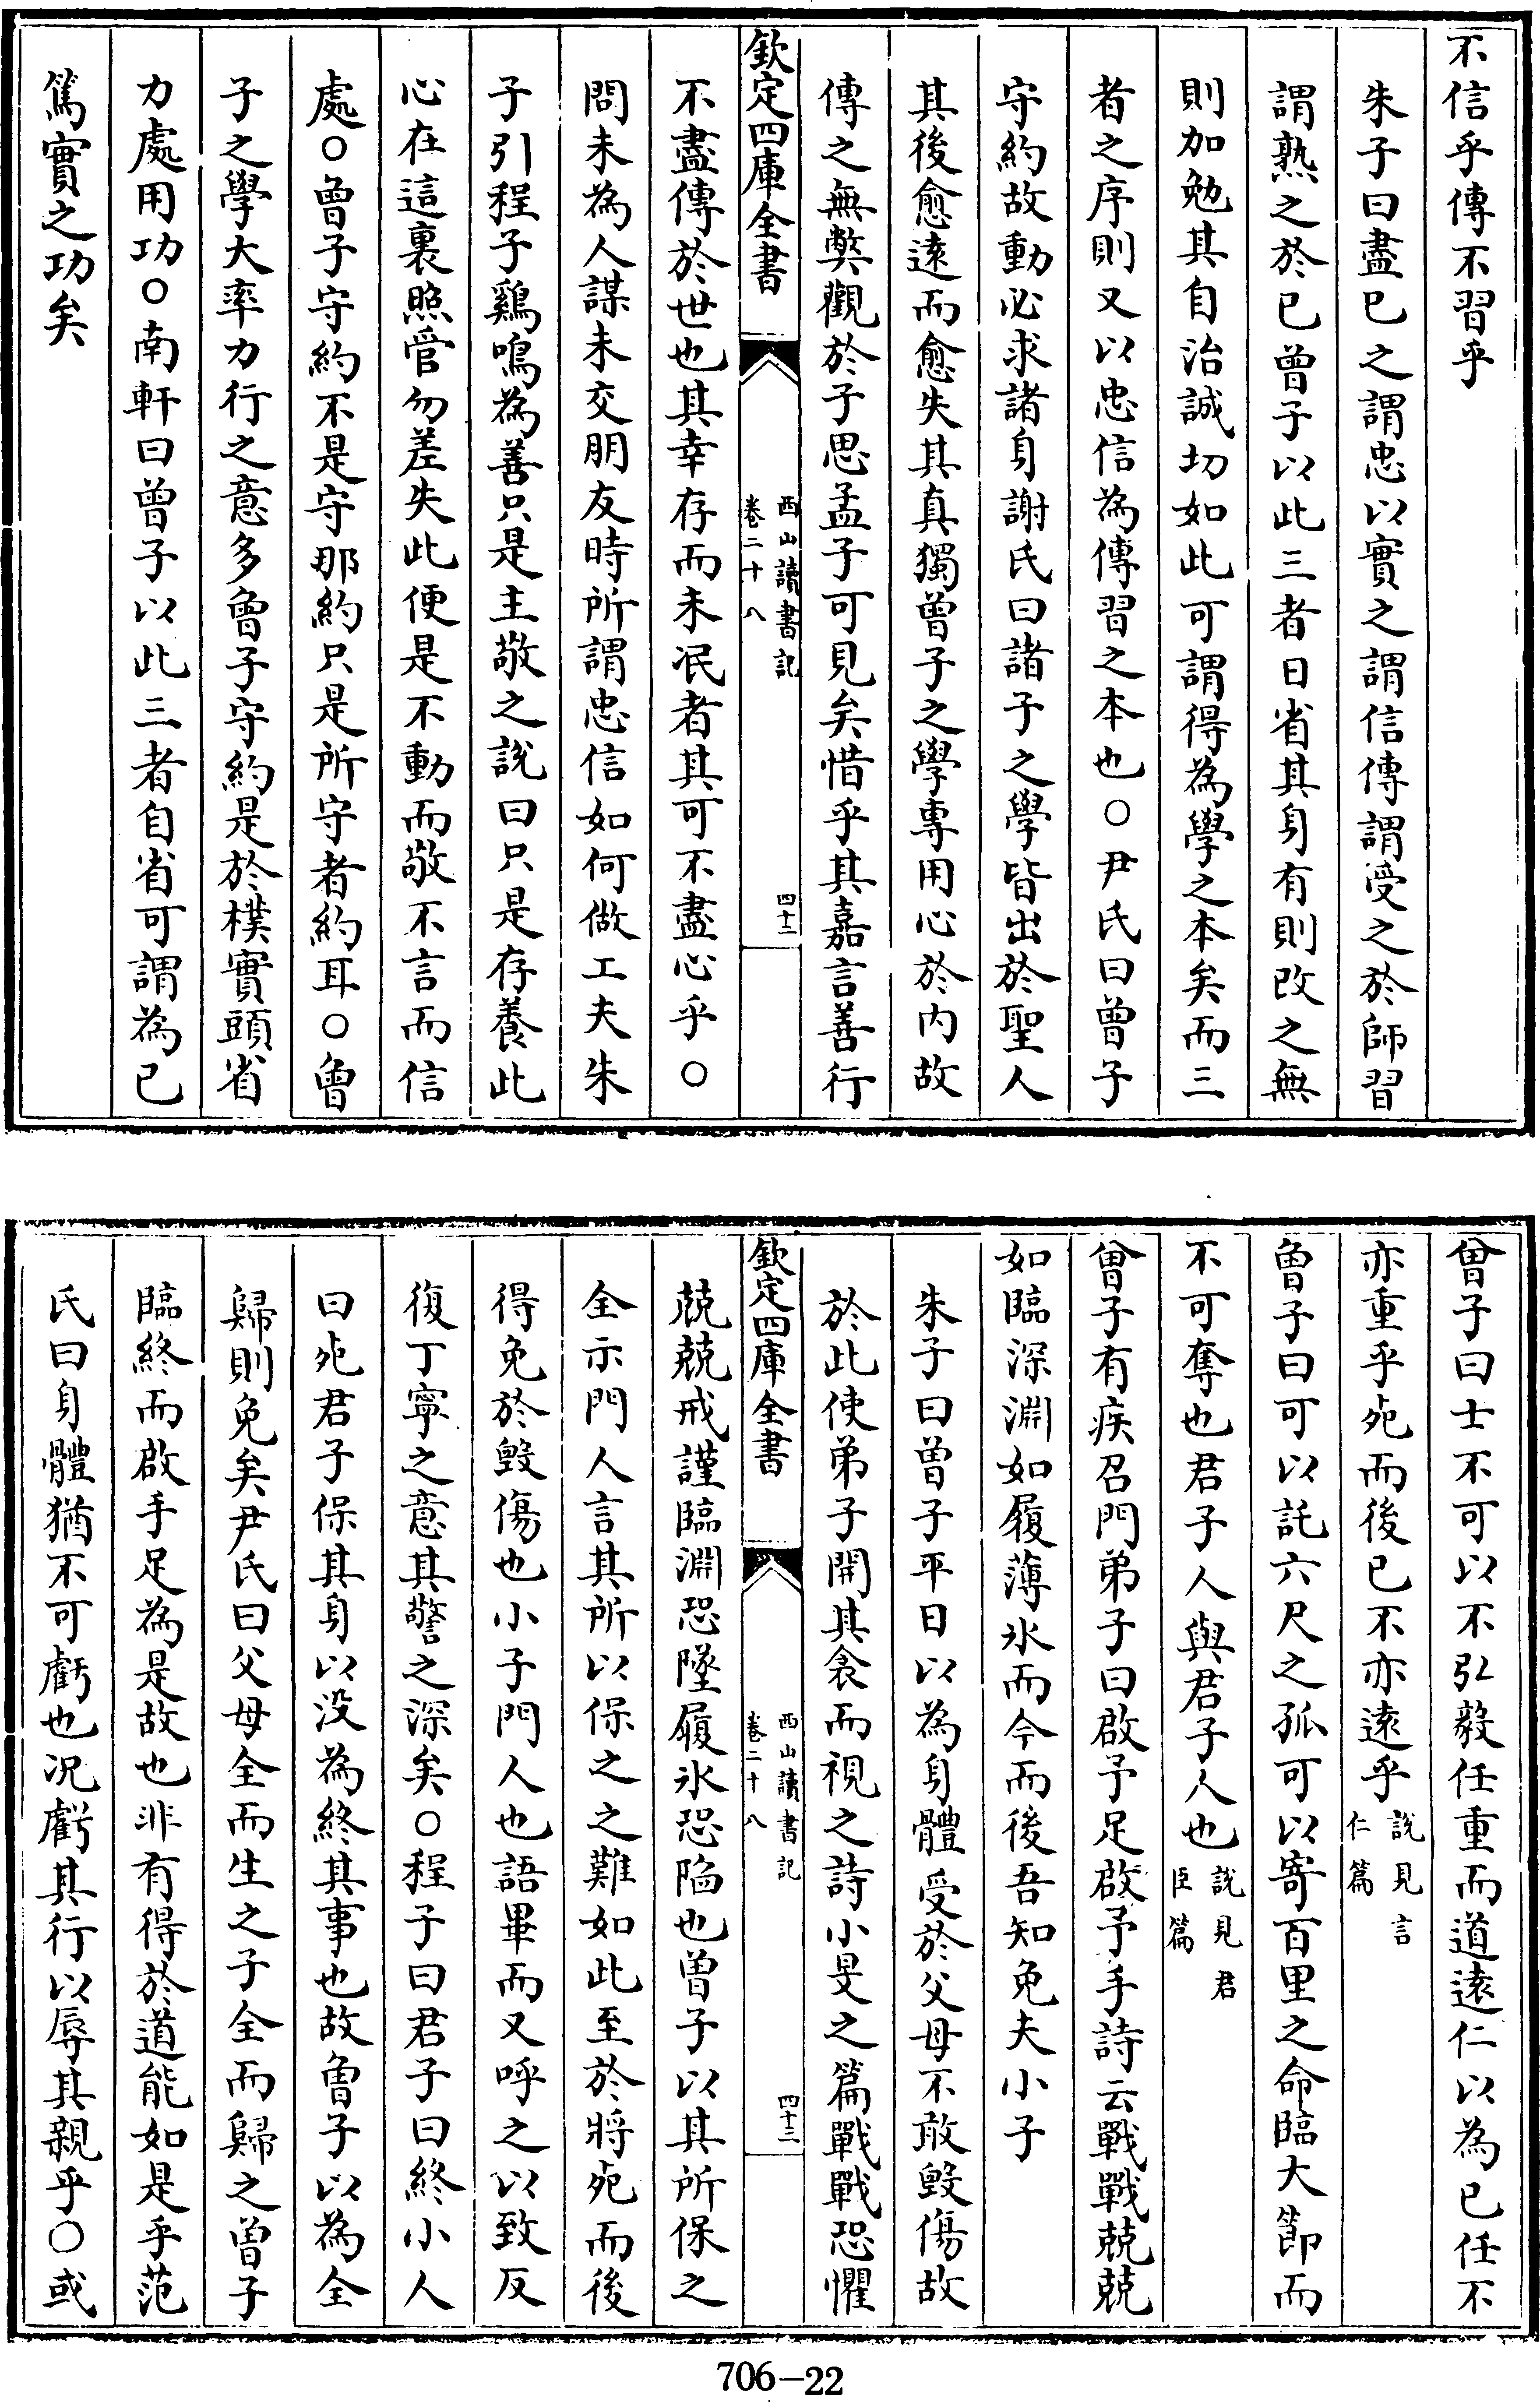 不信乎傳不習乎
朱子曰盡已之謂忠以實之謂信傳謂受之於師習
謂熟之於已曾子以此三者日省其身有則改之無
則加勉其自治誠切如此可謂得為學之本矣而三
者之序則又以忠信為傳習之本也○尹氏曰曾子
守約故動必求諸身謝氏曰諸子之學皆出於聖人
其後愈遠而愈失其真獨曾子之學專用心於内故
傳之無弊觀於子思孟子可見矣惜乎其嘉言善行
欽定四庫全書
西山讀書記
卷二十八
四十二
不盡傳於世也其幸存而未泯者其可不盡心乎○
問未為人謀未交朋友時所謂忠信如何做工夫朱
子引程子鷄鳴為善只是主敬之說曰只是存養此
心在這裏照管勿差失此便是不動而敬不言而信
處○曾子守約不是守那約只是所守者約耳○曾
子之學大率力行之意多曾子守約是於樸實頭省
力處用功○南軒曰曾子以此三者自省可謂為已
篤實之功矣
曾子曰士不可以不弘毅任重而道遠仁以為已任不
亦重乎死而後已不亦遠乎說見言
仁篇
曾子曰可以託六尺之孤可以寄百里之命臨大節而
不可奪也君子人與君子人也說見君
臣篇
曾子有疾召門弟子曰啟予足啟予手詩云戰戰兢兢
如臨深淵如履薄氷而今而後吾知免夫小子
朱子曰曾子平日以為身體受於父母不敢毀傷故
於此使弟子開其衾而視之詩小旻之篇戰戰恐懼
兢兢戒謹臨淵恐墜履氷恐陷也曾子以其所保之
全示門人言其所以保之之難如此至於將死而後
得免於毀傷也小子門人也語畢而又呼之以致反
復丁寧之意其警之深矣○程子曰君子曰終小人
曰死君子保其身以没為終其事也故曾子以為全
歸則免矣尹氏曰父母全而生之子全而歸之曾子
臨終而啟手足為是故也非有得於道能如是乎范
氏曰身體猶不可虧也況虧其行以辱其親乎○或
欽定四庫全書
西山讀書記
卷二十八
四十三
706-22